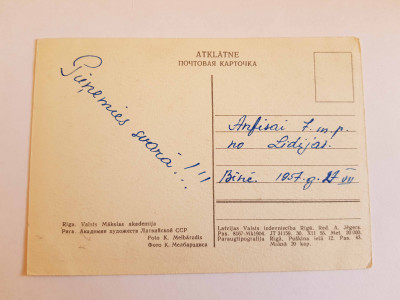 ATKLĀTNE
ПОЧТОВАЯ КАРТОЧКА
Pieņemies svarā!!!
Anfisai 7.m.p.
no Lidijas.
1957.g. VII
Rīga. Valsts Mākslas akadēmija
Рига. Академия художеств Латвийской ССР
Foto K. Melbārdis
Фото К. Мелбардиса
Latvijas Valsts izdevniecība Rīgā. Red. A. Jēgere
Metiens 20 000.
Paraugtipogrāfija Rīgā, Puškina ielā 12. Pas. 45.
Maksā 30 kap.